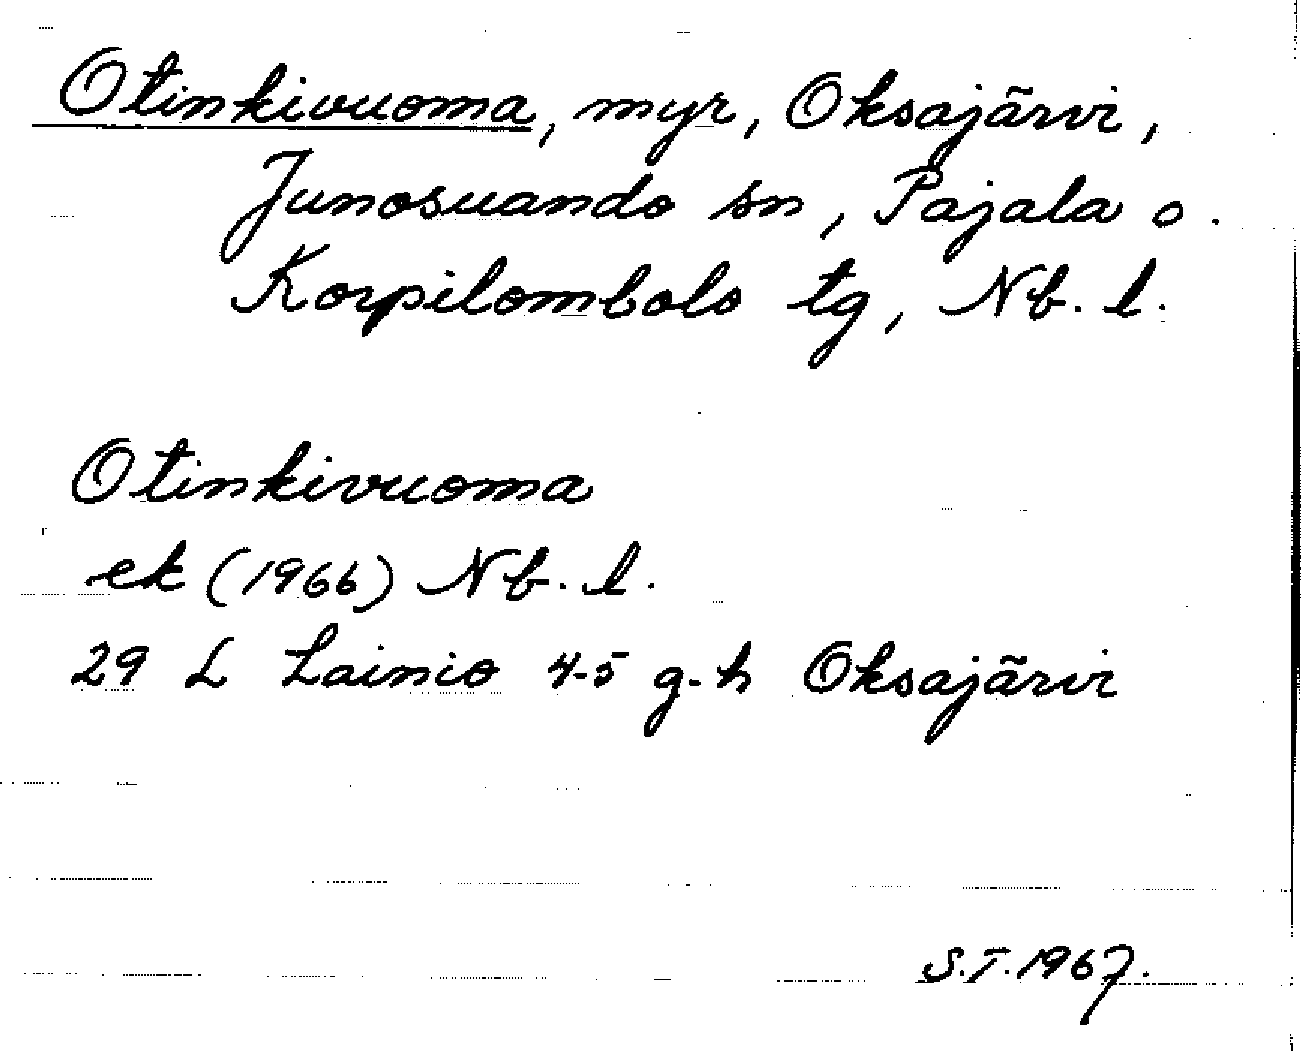 Otinkivuoma, myr, Oksajärvi,
Junosuando sn, Pajala o.
Korpilombolo tg, Nb. l.
Otinkivuoma
ek (1966) Nb. l.
29 L Lainio 4-5 g-h Oksajärvi
S.T. 1967.